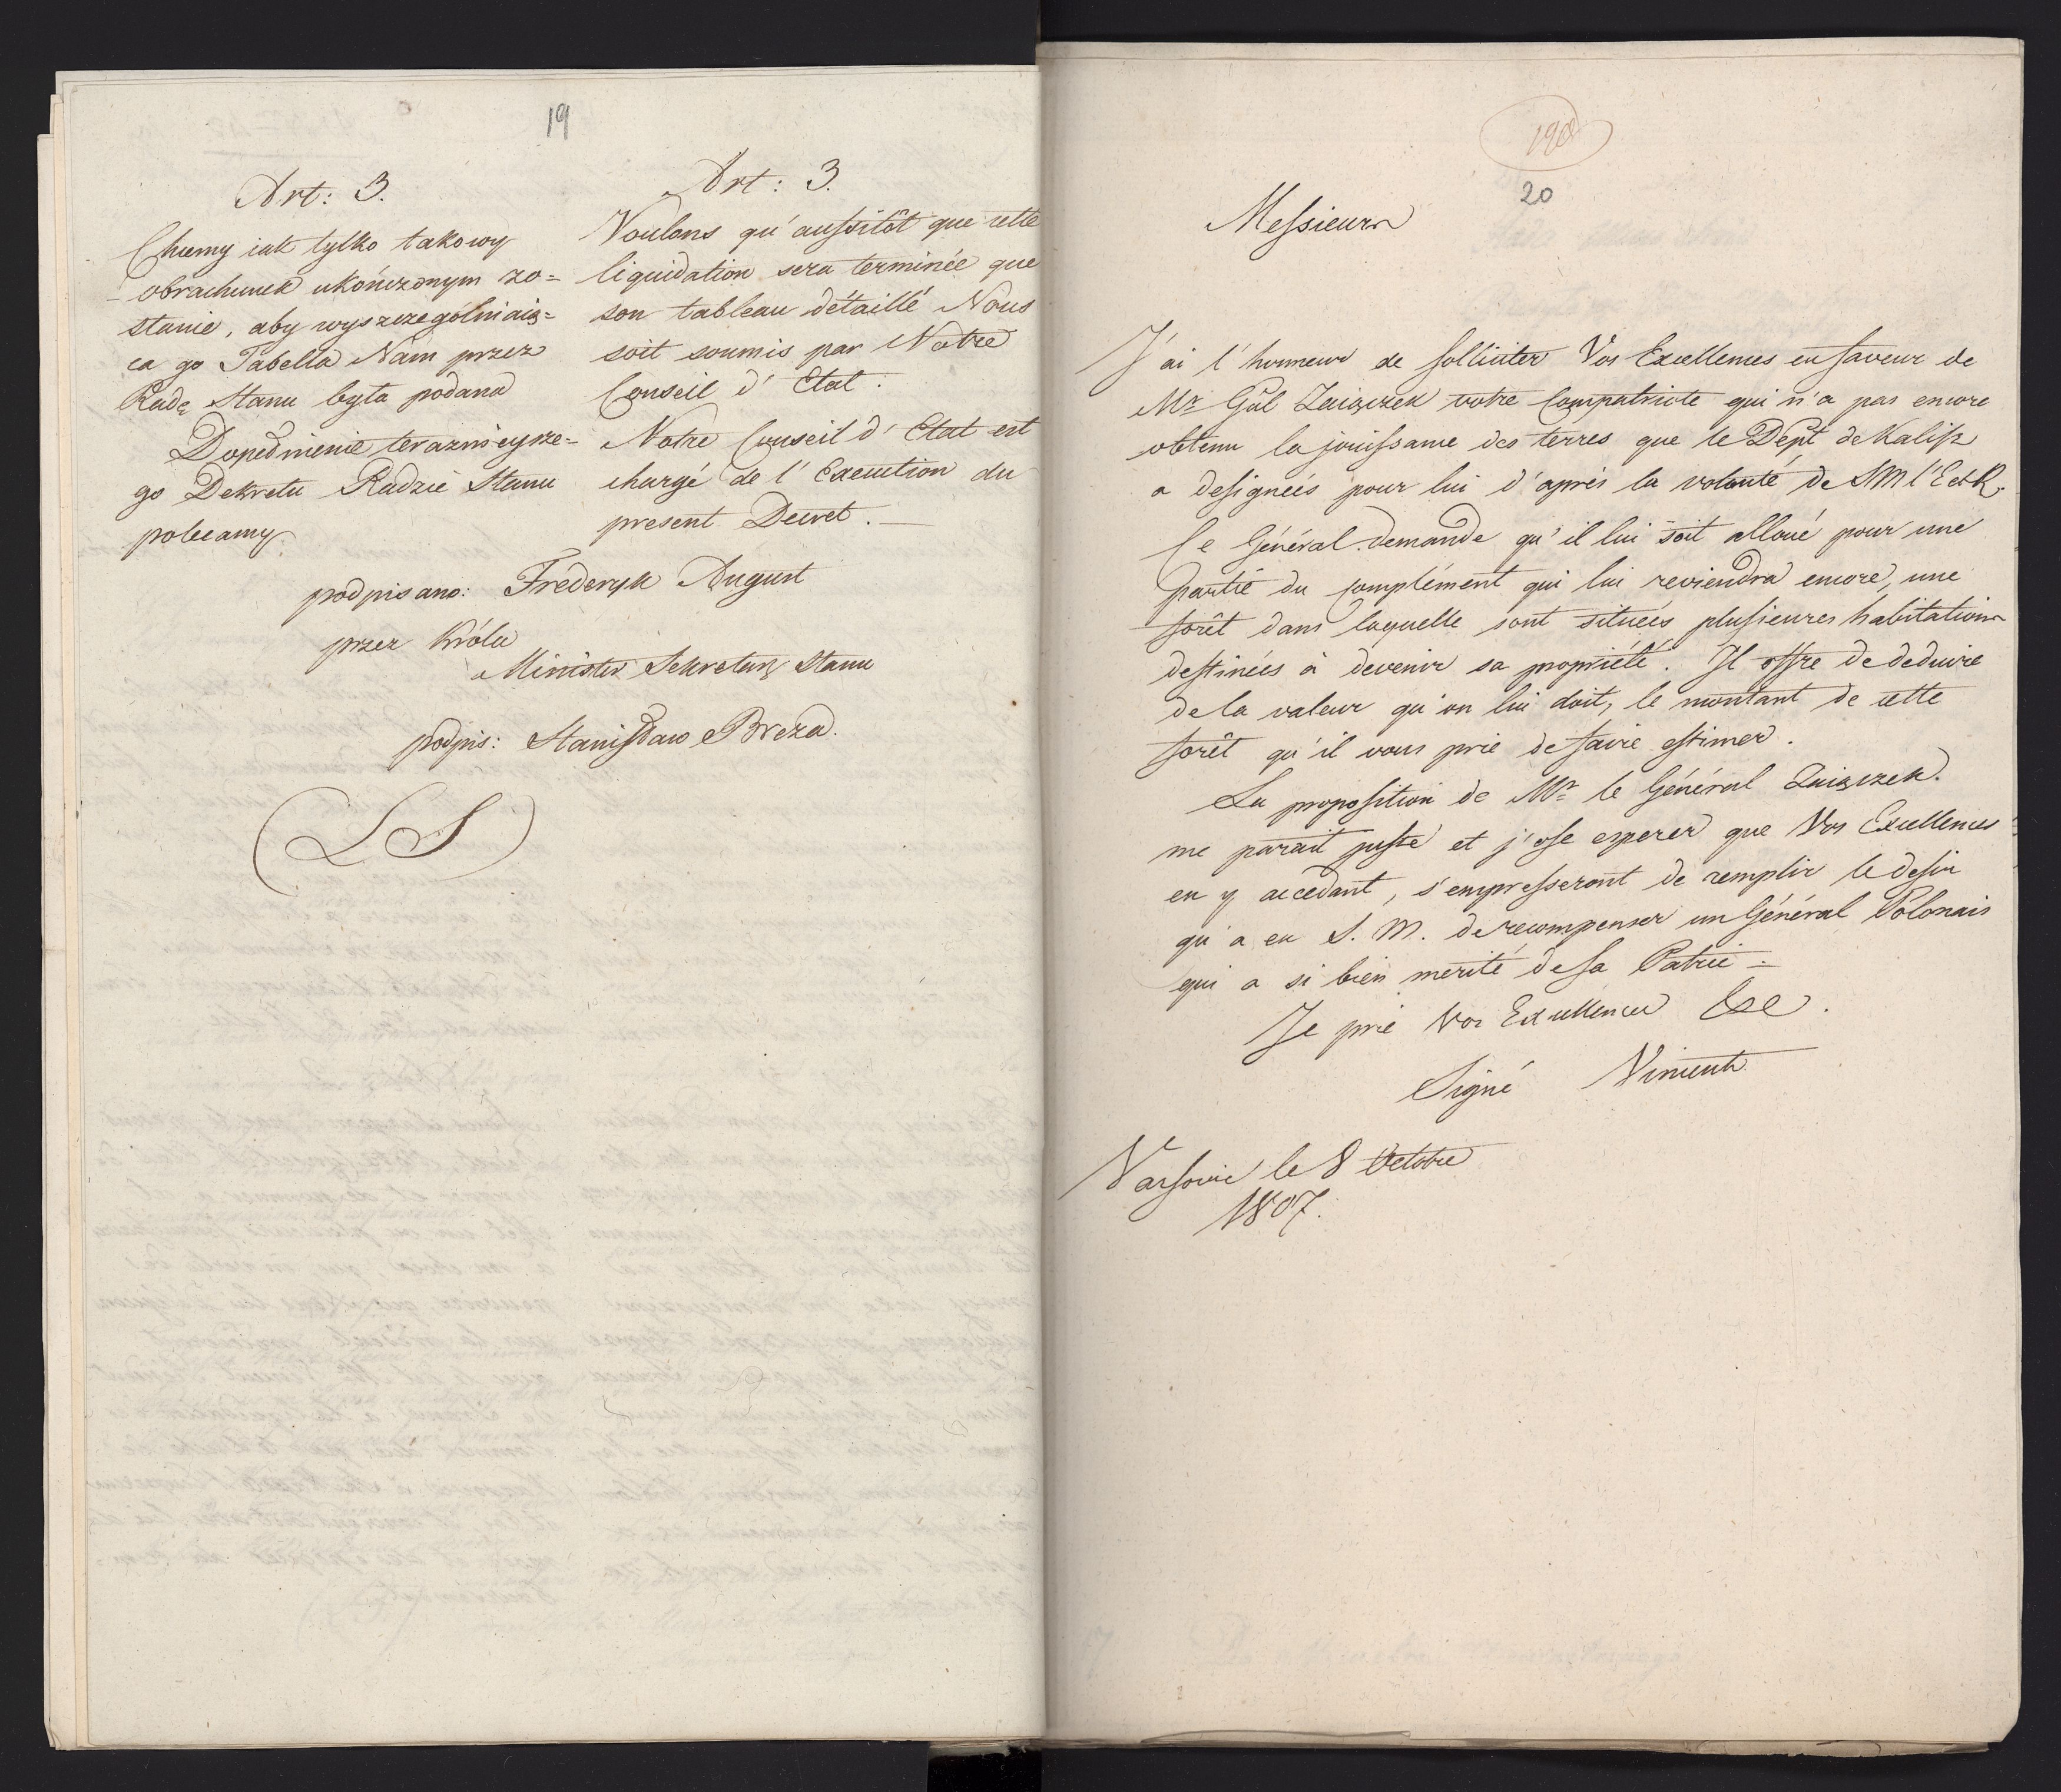 19
Art: 3.
Chcemy iak tylko takowy
obrachunek ukończonym zo=
stanie, aby wyszczególniaią=
ca go Tabella Nam przez
Radę Stanu była podana
Dopełnienie teraznieysze=
go Dekretu Radzie Stanu
polecamy
Art: 3.
Voulons qu'aussitôt que cette
liquidation sera terminée que
son tableau détaillé Nous
soit soumis par Notre
Conseil d'Etat.
Notre Conseil d'Etat est
chargé de l'Execution du
present Decret.
podpisano: Fréderyk August
przez Króla
Minister Sekretarz Stanu
podpis: Stanisław Breza.
(L S)
190
20
Messieurs
J'ai l'honneur de solliciter Vos Excellences en faveur de
Mr Gal Zaiączek votre Compatriote qui n'a pas encore
obtenu la jouissance des terres que le Dept de Kalisz
a designées pour lui d'aprés la volonté de SM l'E et R.
Ce Général demande qu'il lui soit alloué pour une
partie du complément qui lui reviendra encore, une
forêt dans laquelle sont situées plusieures habitations
destinées à devenir sa propriété. Il offre de deduire
de la valeur qu'on lui doit, le montant de cette
forêt qu'il vous prie de faire estimer.
La proposition de Mr le Général Zaiączek.
me parait juste et j'ose esperer que Vos Excellences
en y accedant, s'empresseront de remplir le desir
qu'a eu S. M. de recompenser un Général Polonais
qui a si bien merité de sa Patrie =
Je prie Vos Excellences &c.
Signé Vincent
Varsovie le 8 Octobre
1807.